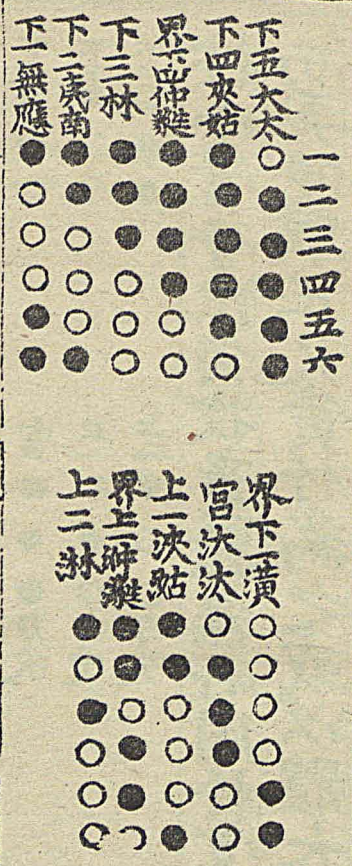 一二三四五六
下五大太
下四夾姑
界下四仲蕤
下三林
下二夷南
下一無應
界下一潢
宮汏汰
上一浹
界上一
上二淋